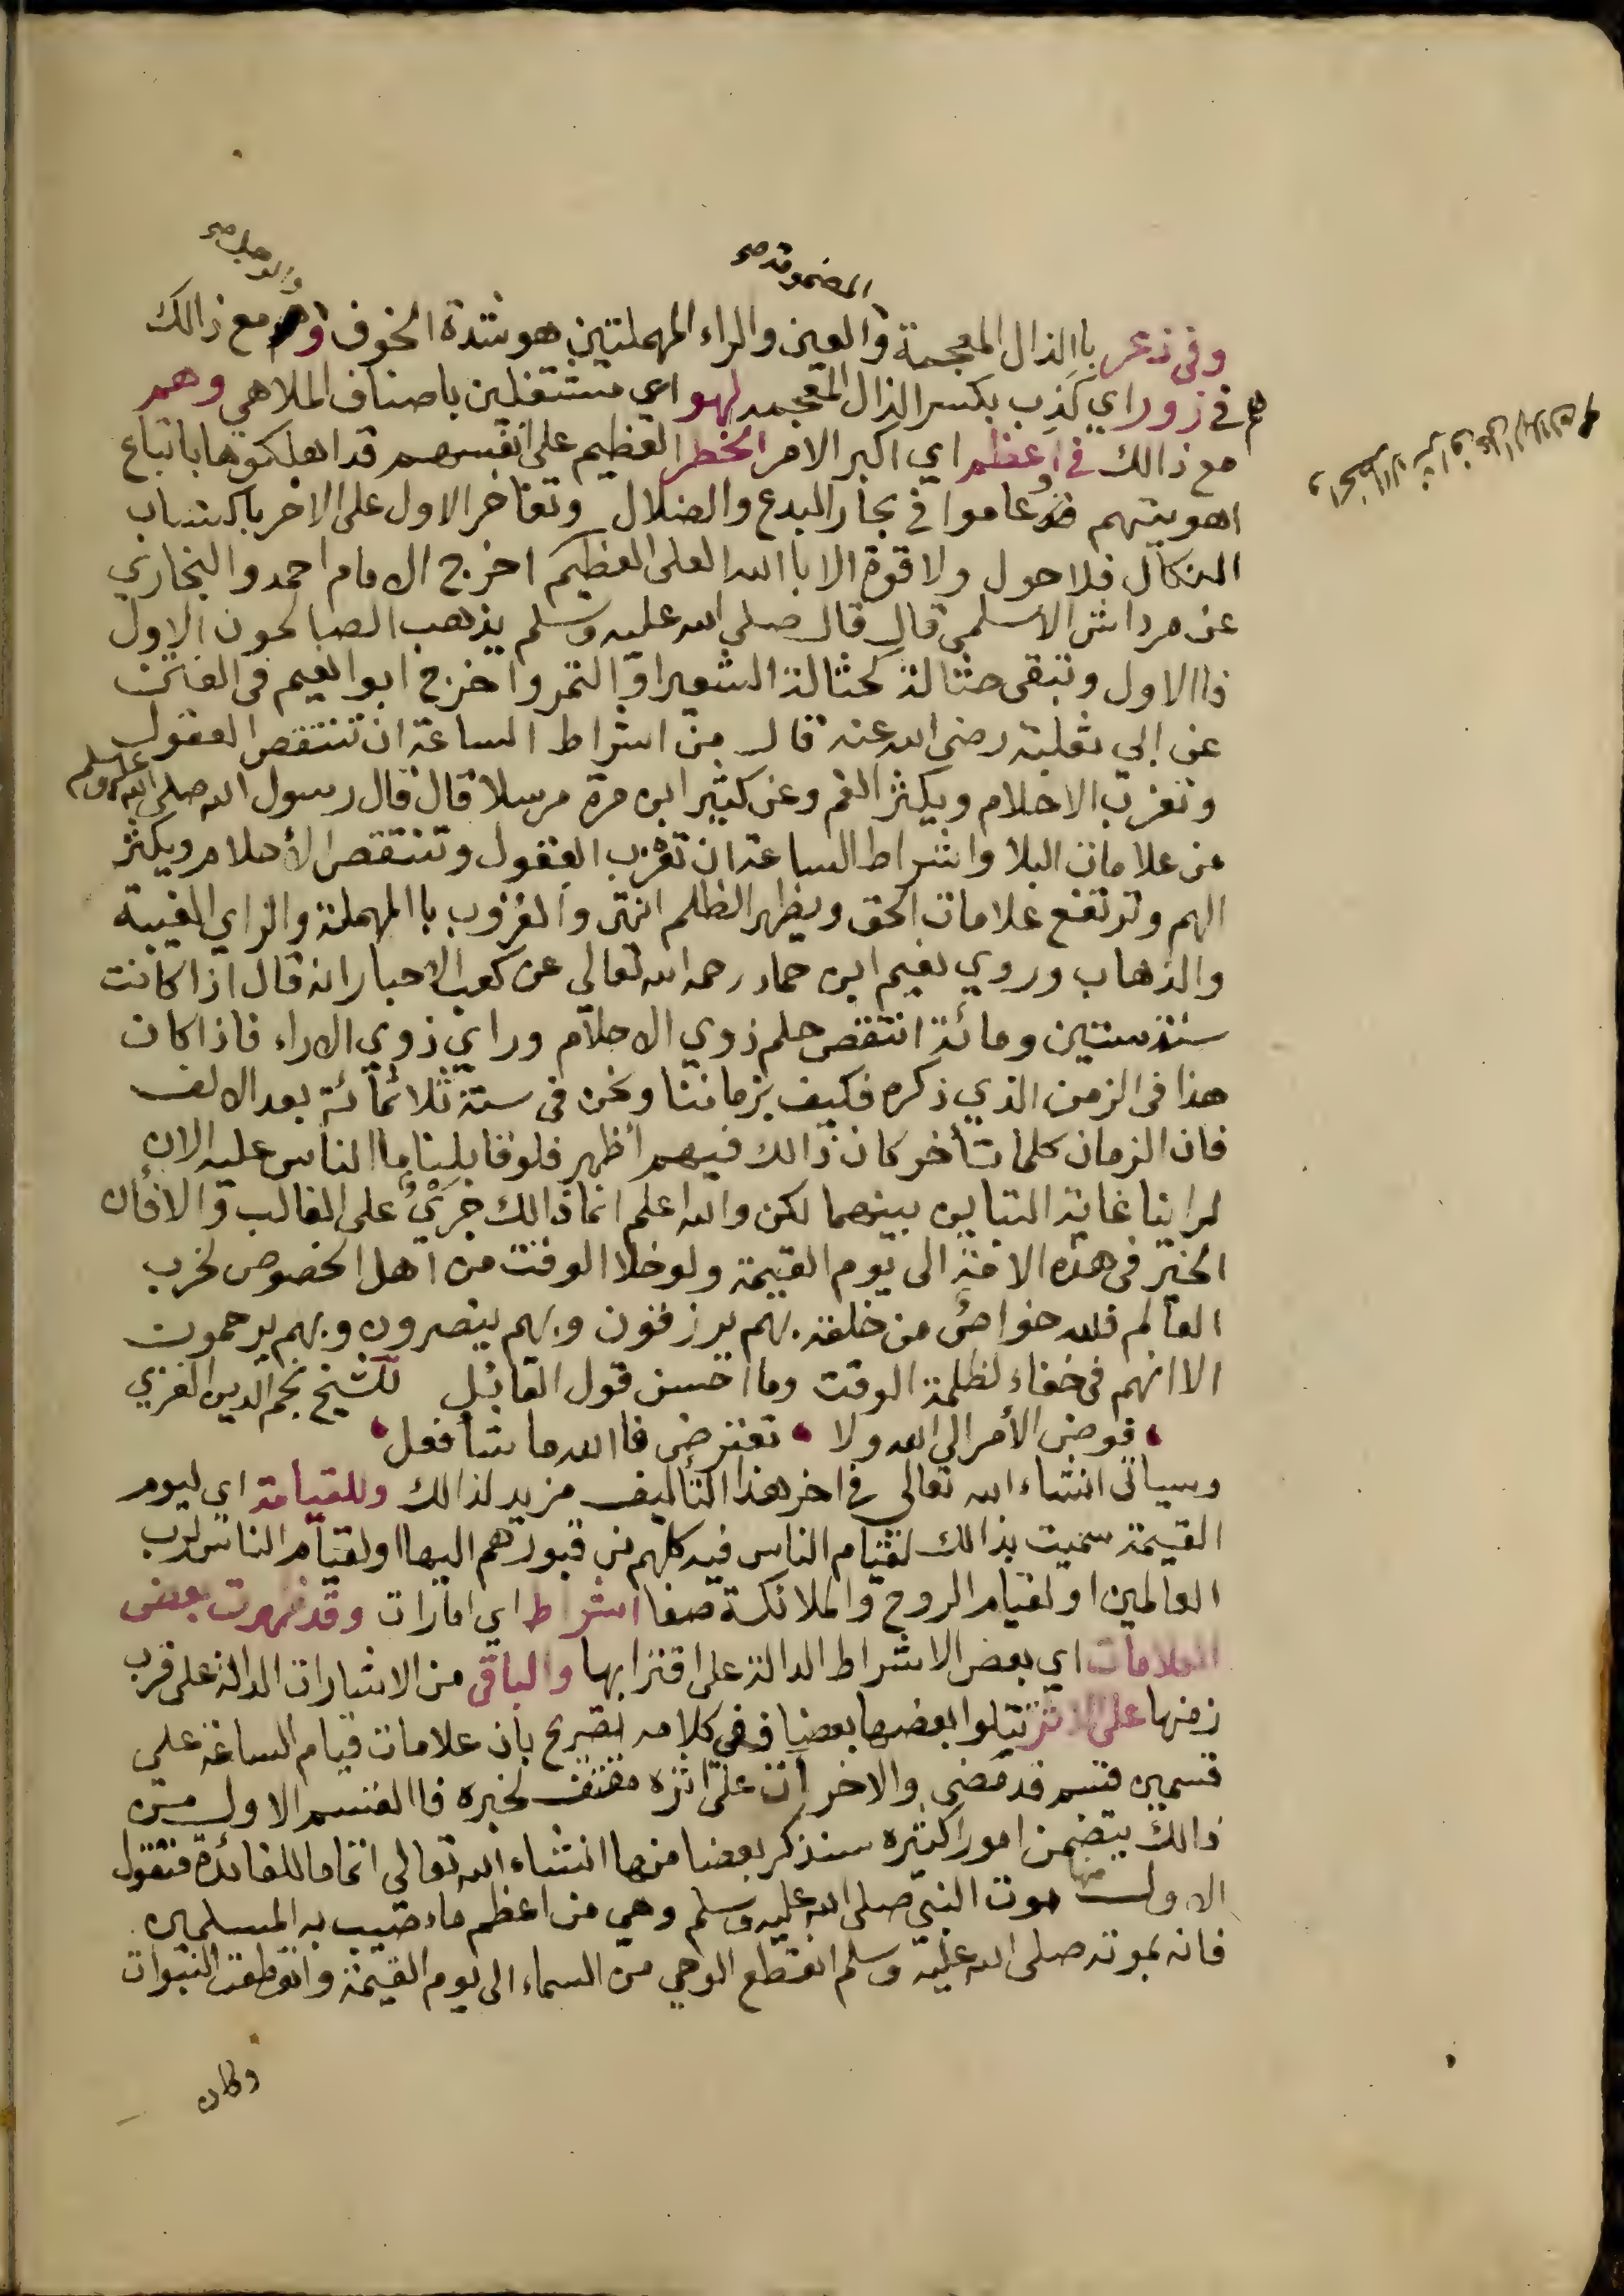 المضمومة صح
والوجل صح
وفي ذعر باالذال المعجمة والعين والراء المهملتين هو شدة الخوف وهم مع ذالك
هم في زور اي كذب بكسر الذال المعجمه لهو اي مشتغلين باصناف الملاهي وهم
مع ذالك في اعظم اي اكبر الامر الخطر العظيم على انفسهم قد اهلكوها باتباع
اهويتهم وعاموا في بحار البدع والضلال وتفاخر الاول على الاخر باكتساب
النكال فلا حول ولا قوة الا باالله العلى العظيم اخرج الامام احمد والبخاري
عن مرداش الاسلمي قال قال صلى الله عليه وسلم يذهب الصالحون الاول
فاالاول وتبقى حثالة كحثالة الشعير او التمر واخرج ابوا نعيم في الفتن
عن ابي ثعلبة رضي الله عنه قال من اشراط الساعة ان تنتقص العقول
وتعزب الاحلام ويكثر الغم وعن كثير ابن مرة مرسلا قال قال رسول الله صلى الله عليه وسلم
من علامات البلا واشراط الساعة ان تعزب العقول وتنتقص الأحلام ويكثر
الهم وترتفع علامات الحق ويظهر الظلم انتهى والعزوب باالمهملة والزاي الغيبة
والذهاب وروي نعيم ابن حماد رحمه الله تعالى عن كعب الاحبار انه قال اذا كانت
سنة ستين ومائة انتقص حلم ذوي الاحلام وراي ذوي الاراء فاذا كان
هذا في الزمن الذي ذكره فكيف بزماننا ونحن في سنة ثلاثمائة بعد الالف
فان الزمان كلما تأخر كان ذالك فيهم أظهر فلو قابلنا ما الناس عليه الان
لراينا غاية التباين بينهما لكن والله اعلم انما ذالك جَرْيٌ على الغالب والا فان
الخير في هذه الامة الى يوم القيمة ولو خلا الوقت من اهل الخصوص لخرب
العالم فلله خواص من خلقه بهم يرزقون وبهم ينصرون وبهم يرحمون
الا انهم في خفاء لظلمة الوقت وما احسن قول القائل للشيخ نجم الدين الغزي
فوض الأمر الي الله ولا • تعترض فاالله ما شا فعل
وسياتي انشاء الله تعالى في اخر هذا التأليف مزيد لذالك وللقيامة اي ليوم
القيمة سميت بذالك لقيام الناس فيه كلهم من قبورهم اليها او لقيام الناس لرب
العالمين او لقيام الروح والملائكة صفا اشراط اي امارات وقد ظهرت بعض
العلامات اي بعض الاشراط الدالة على اقترابها والباقي من الاشارات الدالة على قرب
زمنها على الاثر يتلوا بعضها بعضا وفي كلامه تصريح بان علامات قيام الساعة على
قسمين قسم قد مضى والاخر آت على اثره مقتف لخبره فاالقسم الاول من
ذالك يتضمن امورا كثيره سنذكر بعضا منها انشاء الله تعالى اتماما للفائدة فنقول
الاول منها موت النبي صلى الله عليه وسلم وهي من اعظم ما اصيب به المسلمين
فانه بموته صلى الله عليه وسلم انقطع الوحي من السماء الى يوم القيمة وانقطعت النبوات
وكان